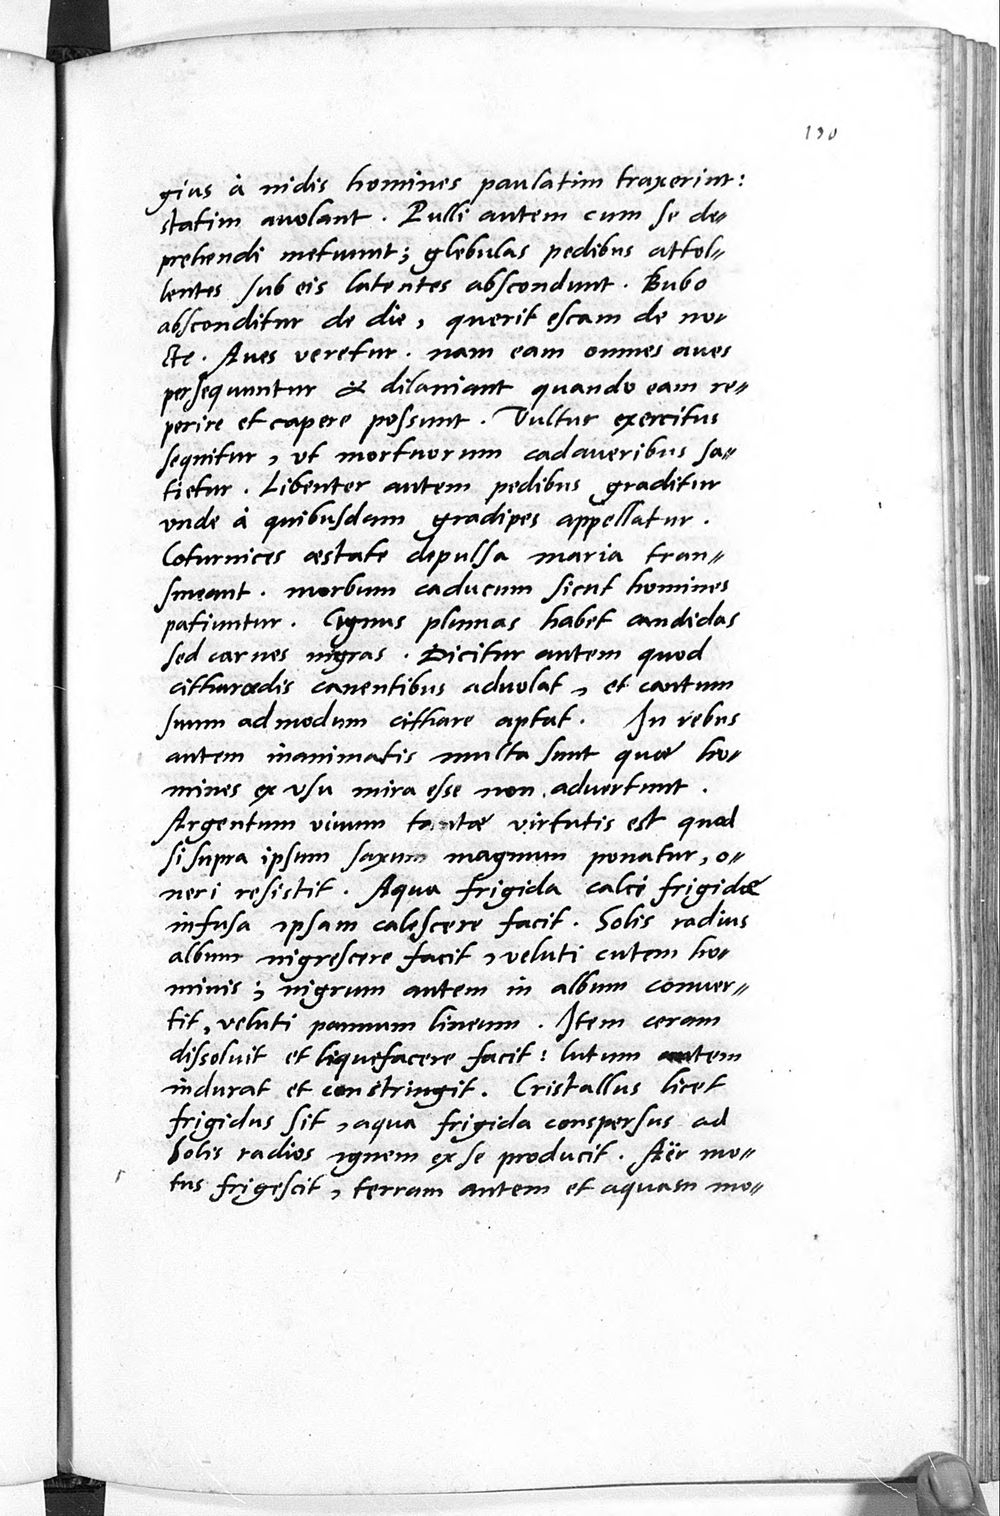 190
gius à nidis homines paulatim traxerint:
statim auolant. Pulli autem cum se de„
prehendi metuunt; glebulas pedibus attol„
lentes sub eis latentes abscondunt. Bubo
absconditur de die, querit escam de no„
cte. Aues veretur. nam eam omnes aues
persequuntur & dilaniant quando eam re„
perire et capere possunt. Vultur exercitus
sequitur, ut mortuorum cadaueribus sa„
tietur. Libenter autem pedibus graditur
vnde à quibusdam gradipes appellatur.
Coturnices æstate depulsa maria tran„
smeant. morbum caducum sicut homines
patiuntur. Cignus plumas habet candidas
sed carnes nigras. Dicitur autem quod
citharœdis canentibus aduolat, et cantum
suum ad modum cithare aptat. In rebus
autem inanimatis multa sunt quæ ho„
mines ex vsu mira esse non aduertunt.
Argentum viuum tantæ virtutis est quod
si supra ipsum saxum magnum ponatur, o„
neri resistit. Aqua frigida calci frigidæ
infusa ipsam calescere facit. Solis radius
album nigrescere facit, veluti cutem ho„
minis; nigrum autem in album conuer„
tit, veluti pannum lineum. Item ceram
dissoluit et liquefacere facit: lutum autem
indurat et constringit. Cristallus licet
frigidus sit, aqua frigida conspersus ad
Solis radios ignem ex se producit. Aër mo„
tus frigescit, terram autem et aquam mo„